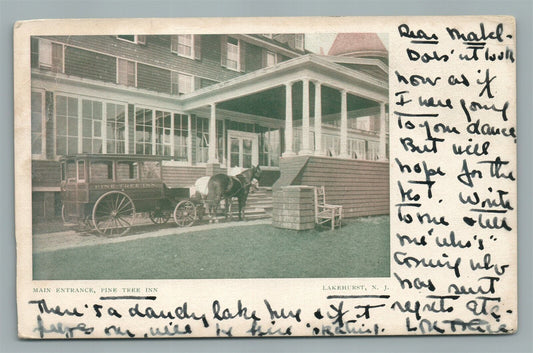 Dear Mabel-
Does'nt look
now as if
I were going
to your dance.
But will
hope for the
best. Write
to me & tell
me "who's"
coming & who
has sent
regrets etc.
PINE TREE INN
MAIN ENTRANCE, PINE TREE INN
LAKEHURST, N. J.
There's a dandy lake here & if it
freezes over, will be fine skating.